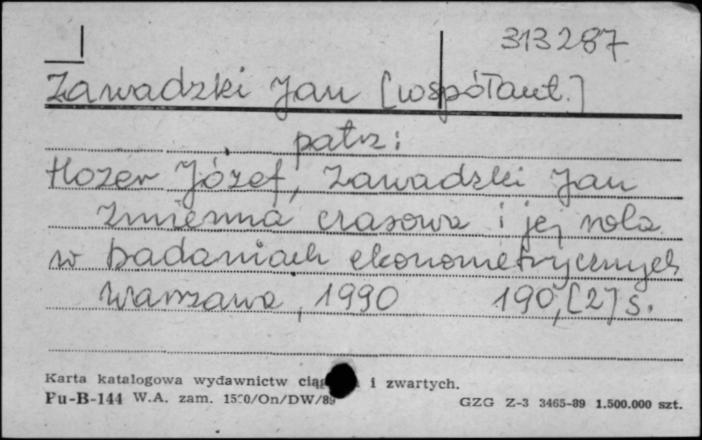 313287
Zawadzki Jan [współaut.]
patrz:
Hozer Józef, Zawadzki Jan
Zmienna czasowa i jej rola
w badaniach ekonometrycznych
Warszawa, 1990 190, [2] s.
Karta katalogowa wydawnictw i zwartych.
Pu-B-144 W.A. zam. /On/DW/89
GZG Z-3 3465-89 1.500.000 szt.